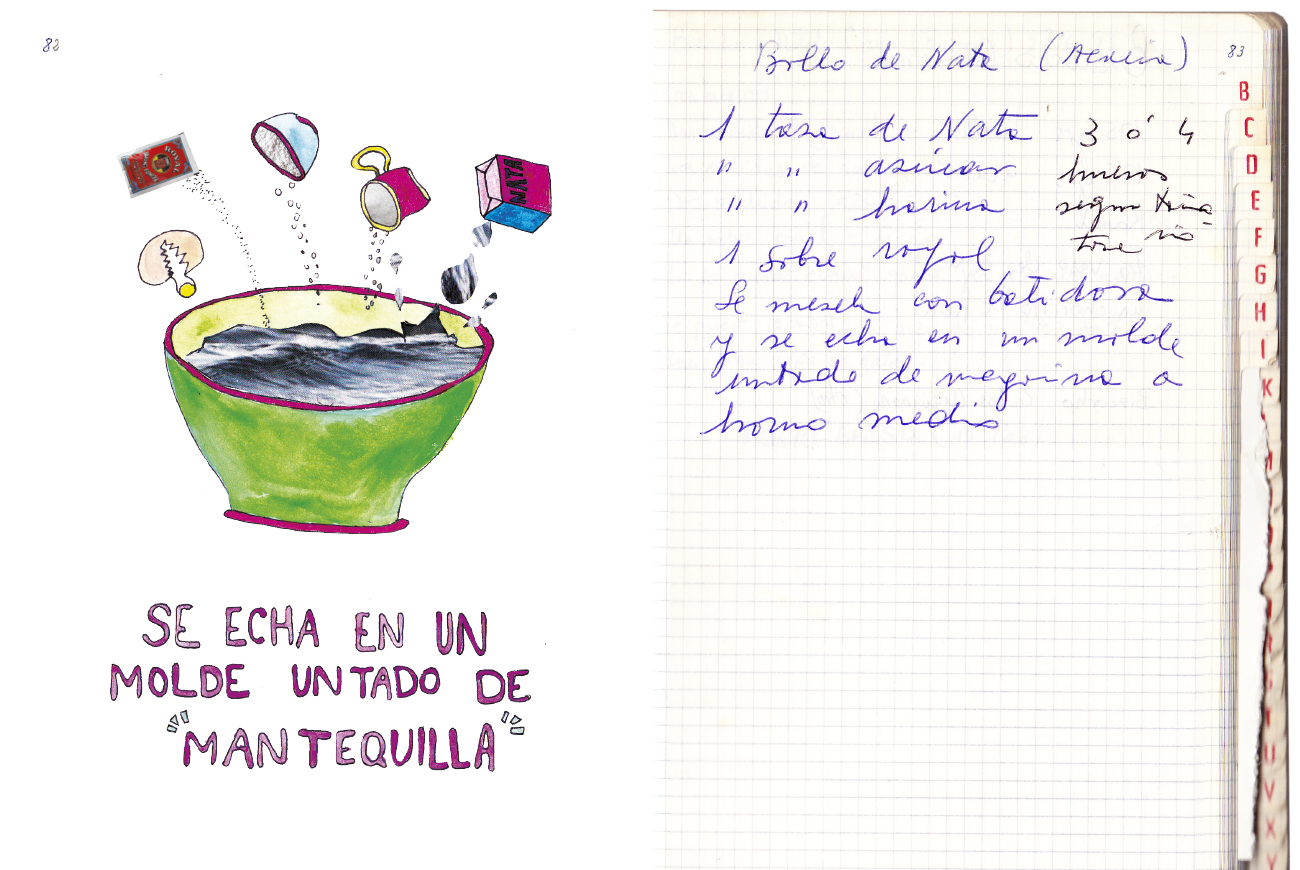 82
NATA
SE ECHA EN UN
MOLDE UNTADO DE
"MANTEQUILLA"
83
Bollo de Nata
1 tasa de Nata
" " asúcar
" " harina
1 sobre royal
3 ó 4
huevos
segun
Se mescla con batidora
y se echa en un molde
untado de
horno medio
B
C
D
E
F
G
H
I
K
U
V
X
Y